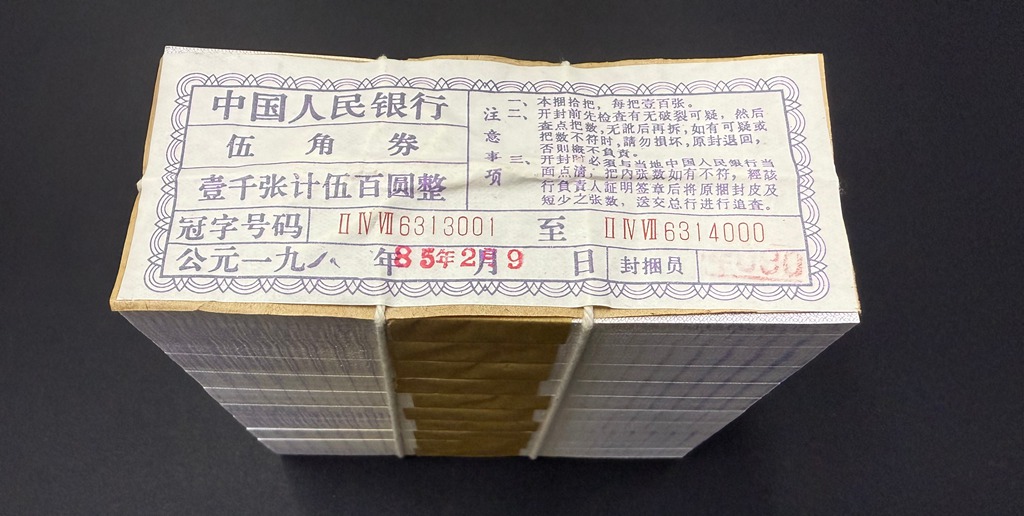 中国人民银行
伍角券
壹千张计伍百圆整
注意事项
一、本捆拾把，每把壹百张。
二、开封前先检查有无破裂可疑，然后
查点把数，无訛后再拆，如有可疑或
把数不符时，請勿损坏，原封退回，
否則概不負責。
三、开封时必须与当地中国人民银行当
面点清，把内张数如有不符，經該
行負責人証明签章后将原捆封皮及
短少之张数，送交总行进行追查。
冠字号码 ⅡⅣⅦ6313001 至 ⅡⅣⅦ6314000
公元一九八 年 月 日 封捆员
85年2月9